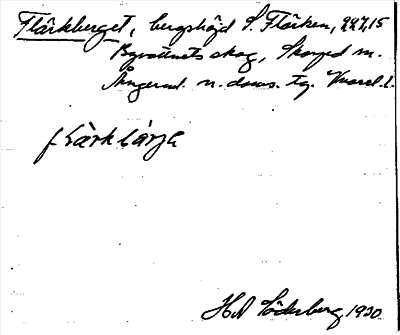 Flärkberget, berghöjd S. Flärken, 227,15
Byvattnets skog, Skorped sn.
Ångerml. n. doms. tg. Vnorrl. l.
flärkbärje
HN Söderberg 1930